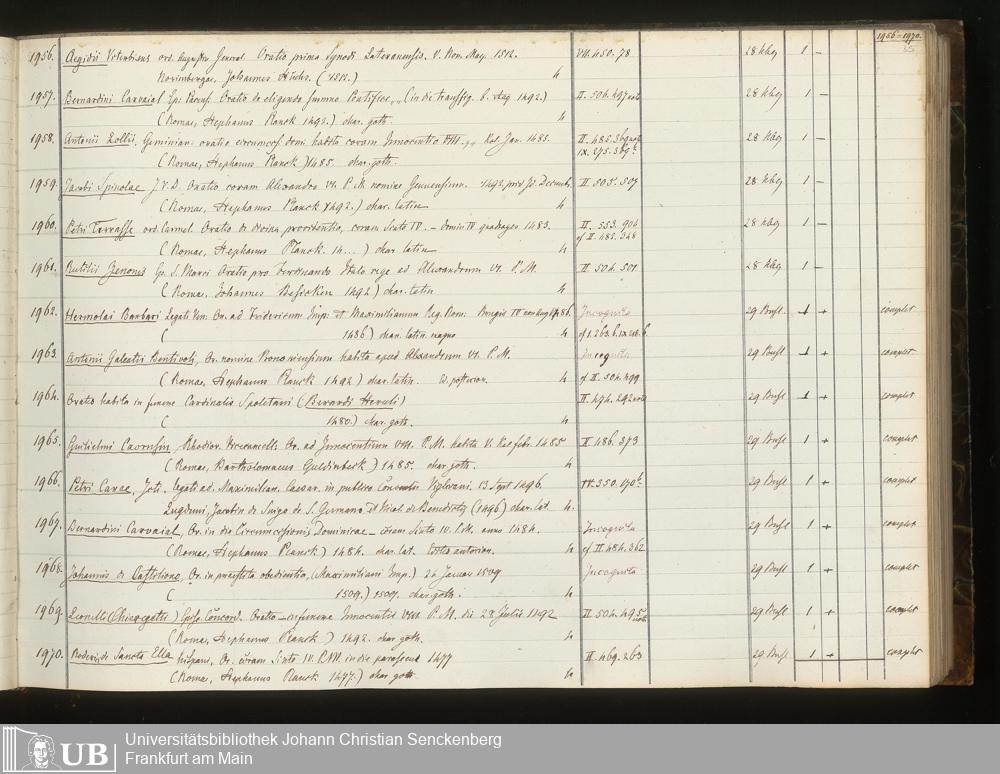 1956 – 1970.
1956. Aegidii Viterbiensis ord. General Oratio prima Synodi Lateranensis. V. Non. May. 1512. VII. 450. 78 28 1 –
Norimbergae, Johannes (1512.) 4
1957. Bernardini Carvaial Ep. Oratio de eligendo summo Pontifice „ (in die 6. Aug 1492.) II. 504. 497 28 1 –
(Romae, Stephanus Planck 1492.) char. goth. 4
1958. Antonii Lollii, Geminian. oratio circumcis. dom. habita coram Innocentio VIII. „ Kal. Jan. 1485. II. 485. 369 28 1 –
(Romae, Stephanus Planck) 1485. char. goth. IX. 275. 369
1959. Jacobi Spinolae J.V.D. Oratio coram Alexandro VI. P.M. nomine Genuensium. 1492. II. 505. 507 28 1 –
(Romae, Stephanus Planck 1492.) char. latin 4
1960. Petri Terrasse ord. Carmel. Oratio de divina providentia, coram Sixto IV. – domin IV quadrages 1483. II. 553. 904 28 1 –
(Romae, Stephanus Planck. 14...) char. latin 4 cf II. 485. 328
1961. Rutilii Zenonis Ep. S. Marci Oratio pro Ferdinando Italo rege ad Alexandrum VI. P.M. II. 504. 501 28 1 –
(Romae, Johannes Besicken 1492.) char. latin 4
1962. Hermolai Barbari Legati Ven. Or. ad Fridericum Imp. et Maximilianum Reg. Rom. Brugis 1486. Incognita 29 1 + complet
( 1486) char. latin. magno 4
1963. Antonii Galeatii Bentivoli, Or. nomine Bononiensium habita apud Alexandrum VI. P.M. Incognita 29 1 + complet
(Romae, Stephanus Planck 1492) char. latin. Ed. posterior. 4 cf II. 504. 499
1964. Oratio habita in funere Cardinalis Spoletani (Berardi Heruli) II. 474. 292 29 1 + complet
( 1480) char. goth. 4
1965. Guilielmi Caorusin Rhodior. Vicecancell. Or. ad Innocentium VIII. P.M. habita V. Kal. febr. 1485 II. 486. 373 29 1 + complet
(Romae, Bartholomaeus Guldinbeck) 1485. char. goth. 4
1966. Petri Carae, Jcti. legati ad. Maximilian. Caesar. in publico Viglevani. 13 Sept 1496. IV. 350. 190 29 1 + complet
Lugduni, Jacobin de Suigo de S. Germano et Nicol. de Benedictis (1496) char. lat. 4.
1967. Bernardini Carvaial, Or. in die Circumcisionis Dominicae – coram Sixto IV. P.M. anno 1484. Incognita 29 1 + complet
(Romae, Stephanus Planck) 1484. char. lat. 4 cf II 484. 362
1968. Johannis de Or. in praestita obedientia, (Maximiliani Imp.) 24 Januar 1509 Incognita 29 1 + complet
( 1509.) 1509. char. goth. 4
1969. Leonelli (Chieregatti) Episc. Concord. Oratio – in funere Innocentii VIII. P.M. die 28 Julii 1492 II. 504. 495 29 1 + complet
(Romae, Stephanus Planck) 1492. char. goth. 4
1970. Roderici de Sancta Ella hispani, Or. coram Sixto IV. P.M. in die parasceue 1477 II. 469. 263 29 1 + complet
(Romae, Stephanus Planck 1477.) char. goth. 4
UB
Universitätsbibliothek Johann Christian Senckenberg
Frankfurt am Main